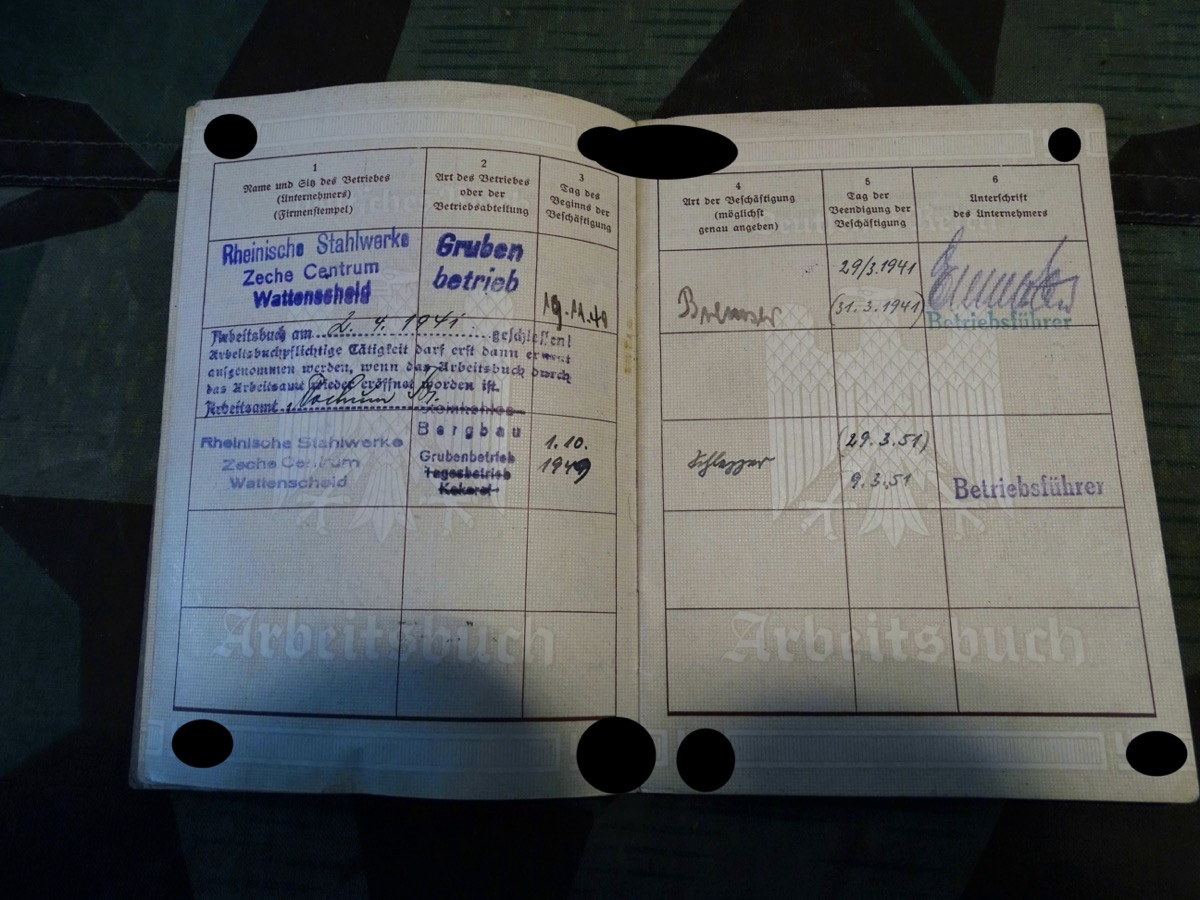 1
Name und Sitz des Betriebes
(Unternehmers)
(Firmenstempel)
2
Art des Betriebes
oder der
Betriebsabteilung
3
Tag des
Beginns der
Beschäftigung
4
Art der Beschäftigung
(möglichst
genau angeben)
5
Tag der
Beendigung der
Beschäftigung
6
Unterschrift
des Unternehmers
Rheinische Stahlwerke
Zeche Centrum
Wattenscheid
Gruben
betrieb
19.11.40
Bremser
29/3.1941
(31.3.1941)
Betriebsführer
Arbeitsbuch am 2. 4. 1941 geschlossen!
Arbeitsbuchpflichtige Tätigkeit darf erst dann erneut
aufgenommen werden, wenn das Arbeitsbuch durch
das Arbeitsamt wieder eröffnet worden ist.
Arbeitsamt Bochum
Rheinische Stahlwerke
Zeche Centrum
Wattenscheid
Steinkohlen-
Bergbau
Grubenbetrieb
Tagesbetrieb
Kokerei
1.10.
1949
Schlepper
(29.3.51)
9.3.51
Betriebsführer
Arbeitsbuch
Arbeitsbuch